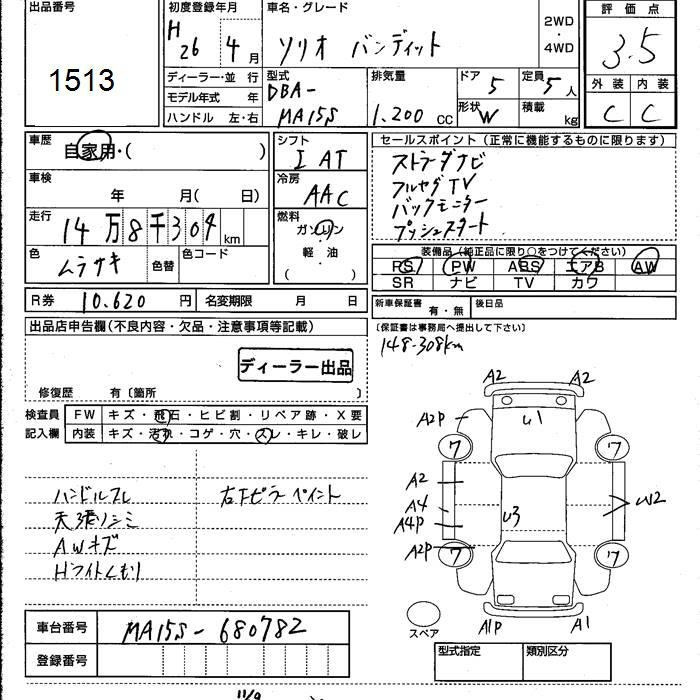 出品番号
1513
初度登録年月
H 26 4月
ディーラー・並 行
モデル年式 年
ハンドル 左・右
車名・グレード
ソリオ バンディット
2WD
・
4WD
型式
DBA-
MA15S
排気量
1.200 cc
ドア 5
形状 W
定員 5人
積載 kg
評価点
3.5
外装 内装
C C
車歴
自家用・( )
車検
年 月( 日)
走行
14万8千304km
色
ムラサキ
色替
色コード
シフト
I AT
冷房
AAC
燃料
ガソリン
軽・油
( )
セールスポイント (正常に機能するものに限ります)
ストラーダナビ
フルセグTV
バックモニター
プッシュスタート
装備品(純正品に限り○をつけてください)
PS PW ABS エアB AW
SR ナビ TV カワ
R券 10.620 円
名変期限 月 日
新車保証書 有・無
後日品
(保証書は事務局へ提出して下さい)
148-308km
出品店申告欄(不良内容・欠品・注意事項等記載)
ディーラー出品
修復歴 有〔箇所 〕
検査員 FW キズ・飛石・ヒビ割・リペア跡・X要
記入欄 内装 キズ・汚れ・コゲ・穴・スレ・キレ・破レ
ハンドルスレ
天張りシミ
AWキズ
Hライトくもり
右下ピラーペイント
A2 A2
A2P U1
ワ ワ
A2
A4
A4P
U3
W2
A2P
ワ ワ
A1P A1
スペア
車台番号 MA15S-680782
登録番号
型式指定 類別区分
11/9